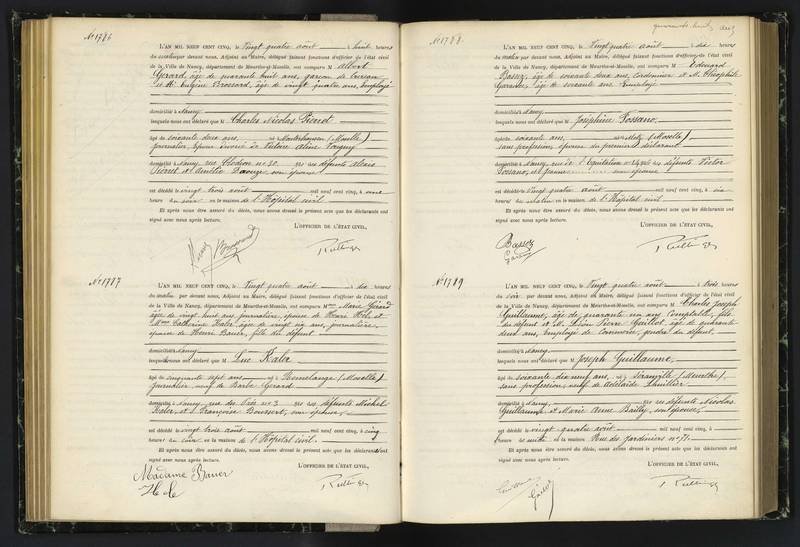 Nº 1786
L'AN MIL NEUF CENT CINQ, le Vingt quatre août à huit heures
du par devant nous, Adjoint au Maire, délégué faisant fonctions d'officier de l'état civil
de la Ville de Nancy, département de Meurthe-et-Moselle, ont comparu M Albert
Gérard, âgé de quarante huit ans, garçon de bureau
et M. Eugène Brossard, âgé de vingt quatre ans, Employé
domiciliés à Nancy
lesquels nous ont déclaré que M Charles Nicolas Pierrot
âgé de soixante deux ans, né à (Moselle)
journalier, époux divorcé de Victoire Aline
domicilié à Nancy, rue nº 20. fils des défunts Alexis
Pierrot et Amélie son épouse
est décédé le vingt trois août mil neuf cent cinq, à onze
heures du soir en la maison de l'Hôpital civil
Et après nous être assuré du décès, nous avons dressé le présent acte que les déclarants ont
signé avec nous après lecture.
L'OFFICIER DE L'ÉTAT CIVIL,
Nº 1787
L'AN MIL NEUF CENT CINQ, le Vingt quatre août à dix heures
du matin par devant nous, Adjoint au Maire, délégué faisant fonctions d'officier de l'état civil
de la Ville de Nancy, département de Meurthe-et-Moselle, ont comparu Mme Marie Gérard
âgée de vingt huit ans, journalière, épouse de Henri
Mme Catherine Kaler âgée de vingt six ans, journalière,
épouse de Henri Bauer, fille du défunt
domiciliés à Nancy
lesquels nous ont déclaré que M Luc Kaler
âgé de cinquante sept ans né à Hémelange (Moselle)
journalier, veuf de Barbe Gérard
domicilié à Nancy, rue des nº 3 fils des défunts Michel
Kaler, et Françoise Boussert, son épouse
est décédé le vingt trois août mil neuf cent cinq, à cinq
heures du soir en la maison de l'Hôpital civil.
Et après nous être assuré du décès, nous avons dressé le présent acte que les déclarants ont
signé avec nous après lecture.
L'OFFICIER DE L'ÉTAT CIVIL,
Madame Bauer
Nº 1788
L'AN MIL NEUF CENT CINQ, le Vingt quatre août à dix heures
du matin par devant nous, Adjoint au Maire, délégué faisant fonctions d'officier de l'état civil
de la Ville de Nancy, département de Meurthe-et-Moselle, ont comparu M Edouard
Bassoz, âgé de soixante deux ans, cordonnier et M. Théophile
âgé de soixante ans, Employé
domiciliés à Nancy
lesquels nous ont déclaré que M Joséphine Possano
âgée de soixante ans, née à Metz (Moselle)
sans profession, épouse du premier déclarant
domiciliée à Nancy, rue de l'Equitation nº fille des défunts Victor
Possano, et Jeanne son épouse
est décédée le vingt quatre août mil neuf cent cinq, à six
heures du matin en la maison de l'Hôpital civil
Et après nous être assuré du décès, nous avons dressé le présent acte que les déclarants ont
signé avec nous après lecture.
L'OFFICIER DE L'ÉTAT CIVIL,
Bassoz
Nº 1789
L'AN MIL NEUF CENT CINQ, le Vingt quatre août à trois heures
du soir par devant nous, Adjoint au Maire, délégué faisant fonctions d'officier de l'état civil
de la Ville de Nancy, département de Meurthe-et-Moselle, ont comparu M Charles Joseph
Guillaume, âgé de quarante un ans, Comptable, fils
du défunt et M. Léon Pierre Guillot, âgé de quarante
deux ans, Employé de Commerce, gendre du défunt.
domiciliés à Nancy
lesquels nous ont déclaré que M Joseph Guillaume,
âgé de soixante dix neuf ans, né à (Meurthe)
sans profession, veuf de Adélaïde
domicilié à Nancy, fils des défunts Nicolas
Guillaume et Marie Anne Bailly, son épouse
est décédé le vingt quatre août mil neuf cent cinq, à
heure et en la maison Rue des Jardiniers nº 71.
Et après nous être assuré du décès, nous avons dressé le présent acte que les déclarants ont
signé avec nous après lecture.
L'OFFICIER DE L'ÉTAT CIVIL,
Guillaume
Guillot